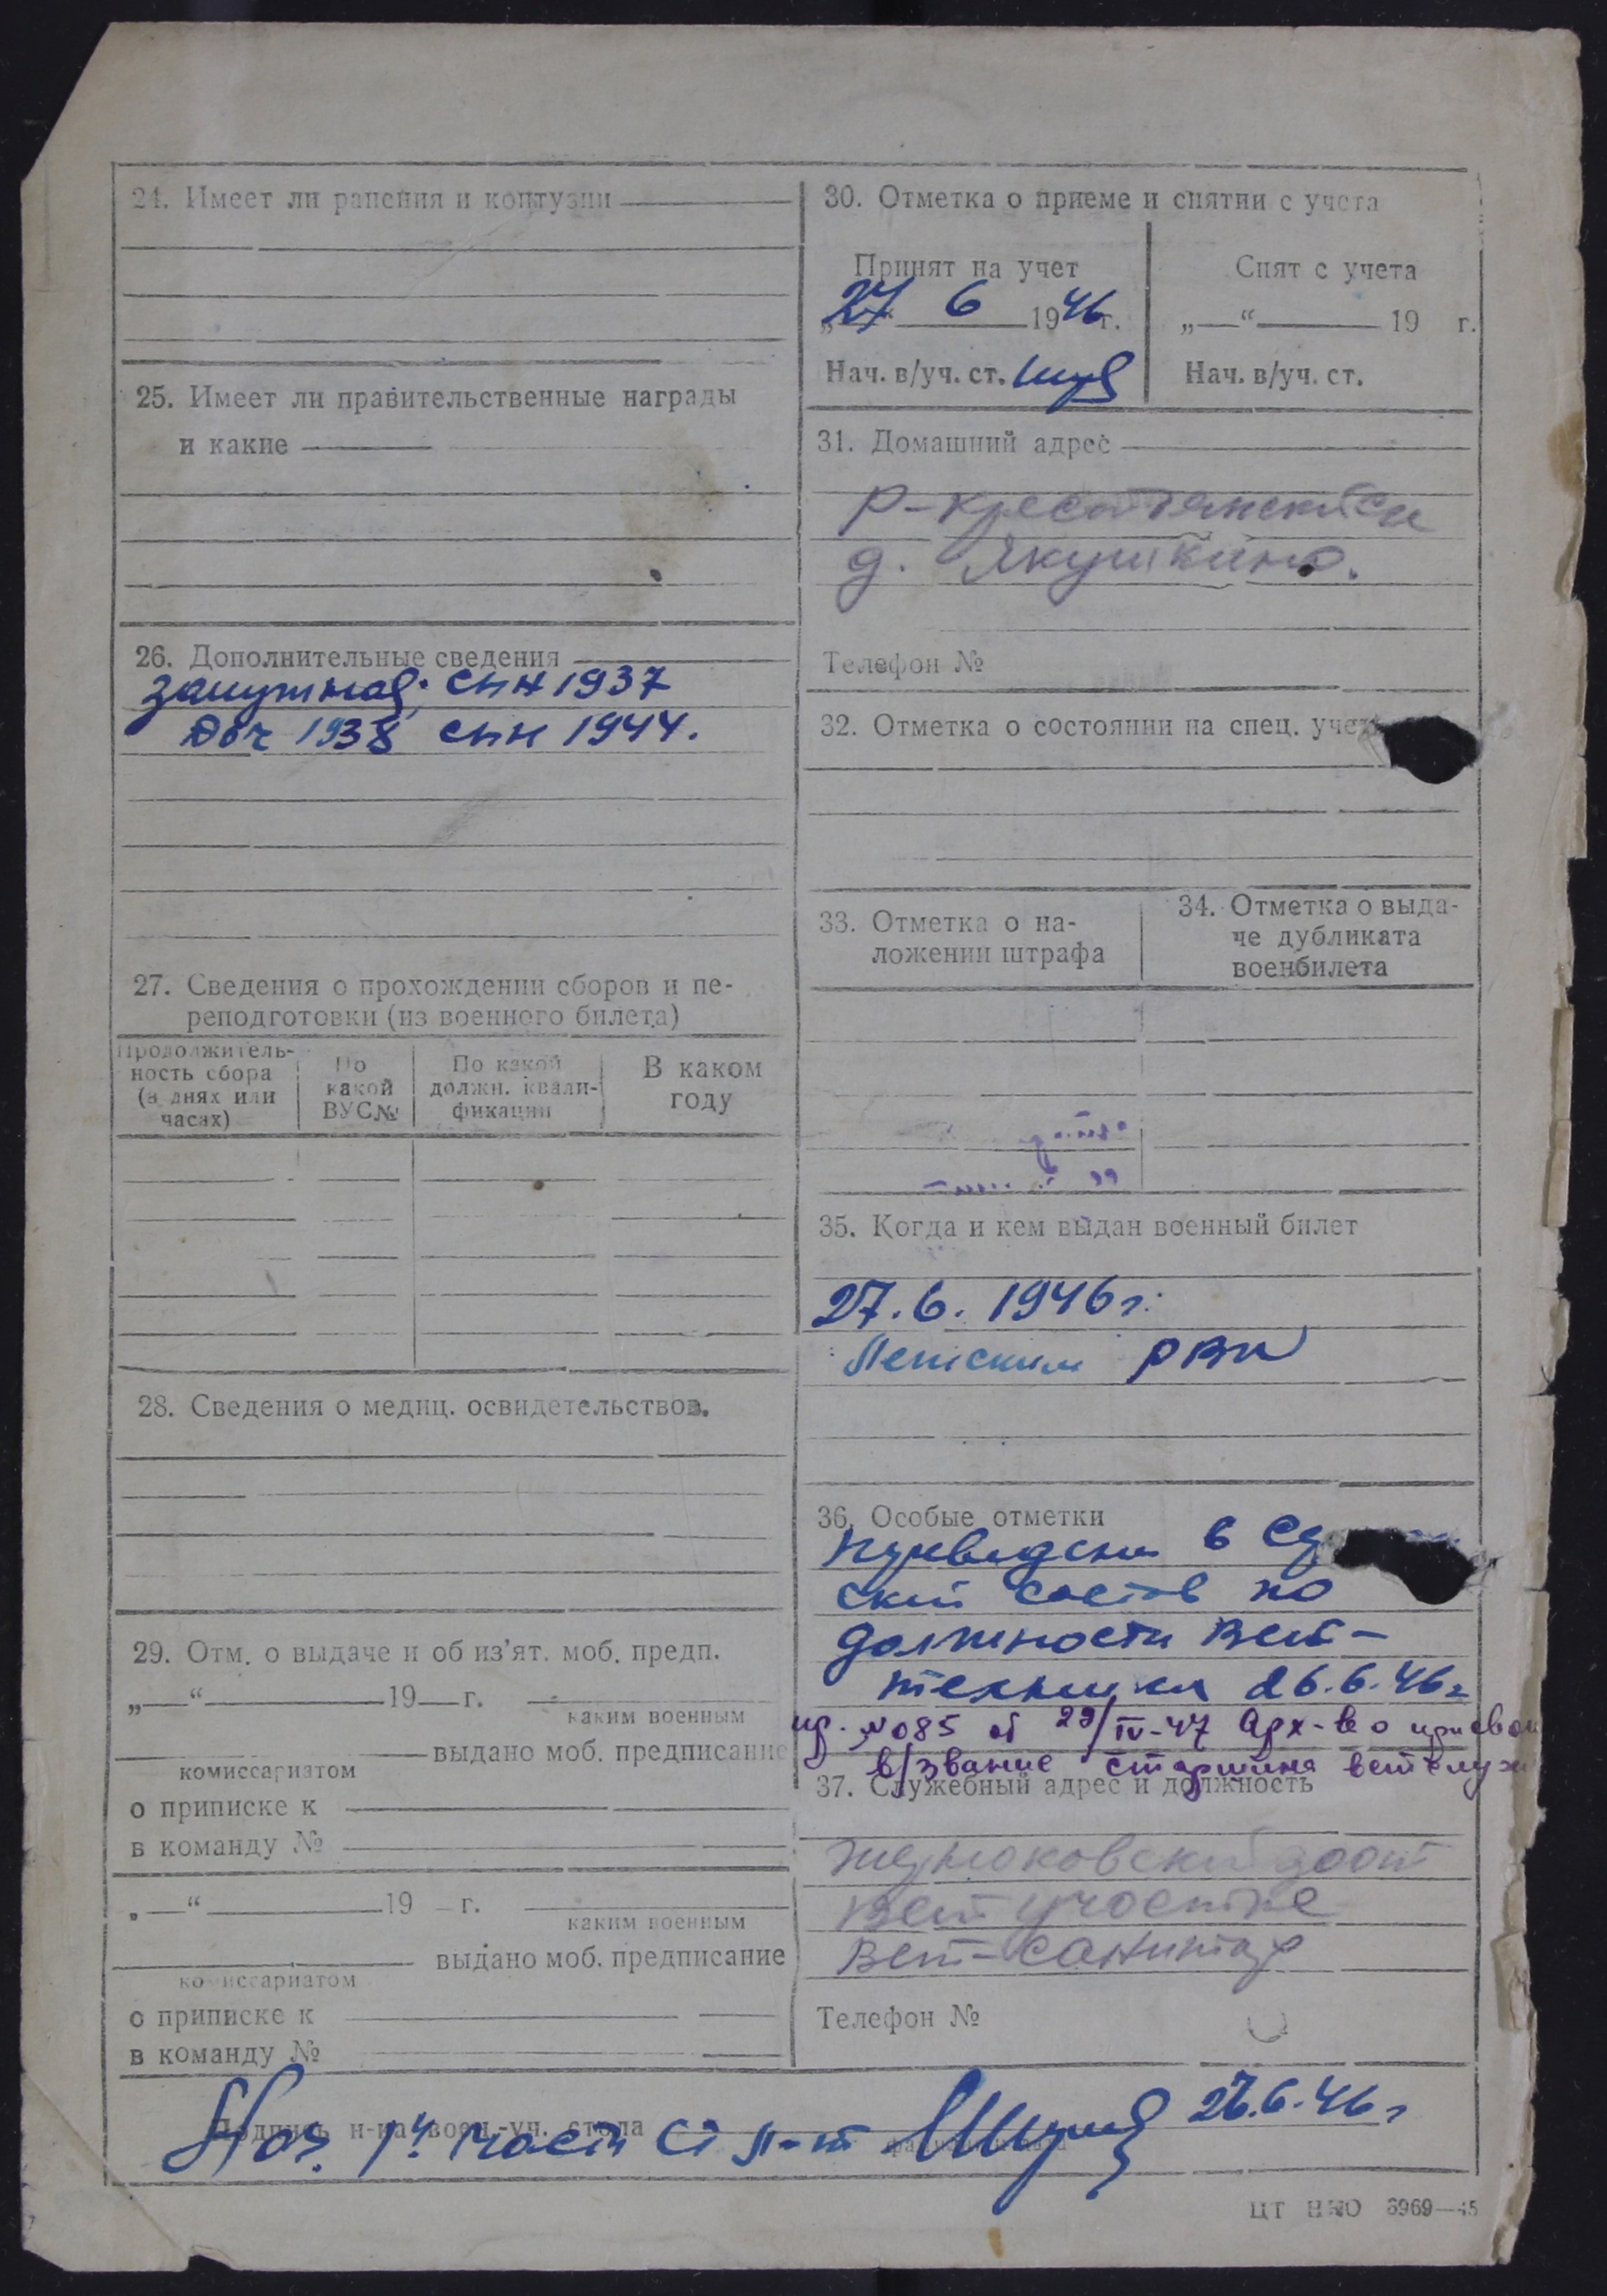 24. Имеет ли ранения и контузии
25. Имеет ли правительственные награды
и какие
26. Дополнительные сведения
Замужняя; сын 1937
доч 1938 сын 1944.
27. Сведения о прохождении сборов и пе-
реподготовки (из военного билета)
Продолжитель-
ность сбора
(в днях или
часах)
По
какой
ВУС№
По какой
должн. квали-
фикации
В каком
году
28. Сведения о медиц. освидетельствов.
29. Отм. о выдаче и об из'ят. моб. предп.
„ “ 19 г.
каким военным
выдано моб. предписание
комиссариатом
о приписке к
в команду №
„ “ 19 г.
каким военным
выдано моб. предписание
комиссариатом
о приписке к
в команду №
30. Отметка о приеме и снятии с учета
Принят на учет
„27“ 6 1946г.
Нач. в/уч. ст.
Снят с учета
„ “ 19 г.
Нач. в/уч. ст.
31. Домашний адрес
д. Якушкино.
Телефон №
32. Отметка о состоянии на спец. уче
33. Отметка о на-
ложении штрафа
34. Отметка о выда-
че дубликата
военбилета
35. Когда и кем выдан военный билет
27.6. 1946г.
РВК
36. Особые отметки
в се
ский состав по
должности Вет-
техника 26.6.46г
пр. №085 от 29/IV-47 Арх-в о присвои
в/звание старшина ветслуж
37. Служебный адрес и должность
зоовет
Вет участке
Вет-санитар
Телефон №
Подпись н-ка воен.-уч. стола
Нач. 1й части ст л-т
26.6.46г
ЦТ НКО 6969—45